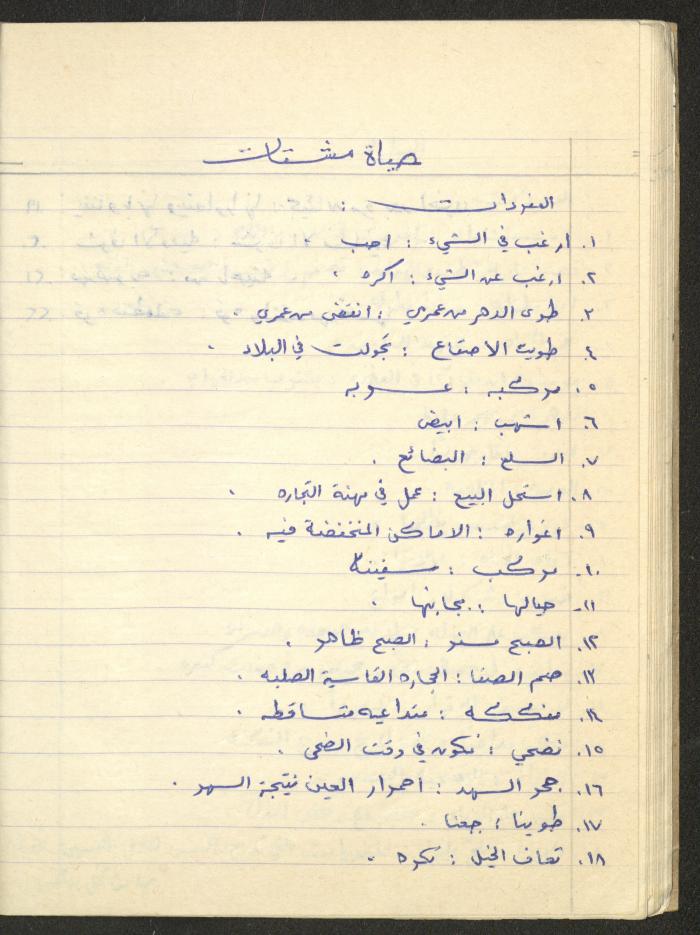 حياة مشتات
المفردات :
١. ارغب في الشيء : احب .
٢. ارغب عن الشيء : اكره .
٣. طوى الدهر من عمري : انقضى من عمري .
٤. طويت الاصقاع : تجولت في البلاد .
٥. مركبه : عربه
٦. اشهب : ابيض
٧. السلع : البضائع .
٨. استحل البيع : عمل في مهنة التجاره .
٩. اغواره : الاماكن المنخفضة فيه .
١٠. مركب : سفينة
١١. حيالها : بجانبها .
١٢. الصبح مسفر : الصبح ظاهر .
١٣. صم الصفا : الحجاره القاسية الصلبه .
١٤. مفككه : متداعيه متساقطه .
١٥. نضحي : نكون في وقت الضحى .
١٦. جمر السهد : احمرار العين نتيجة السهر .
١٧. طوينا : جعنا .
١٨. تعاف الخيل : تكره .